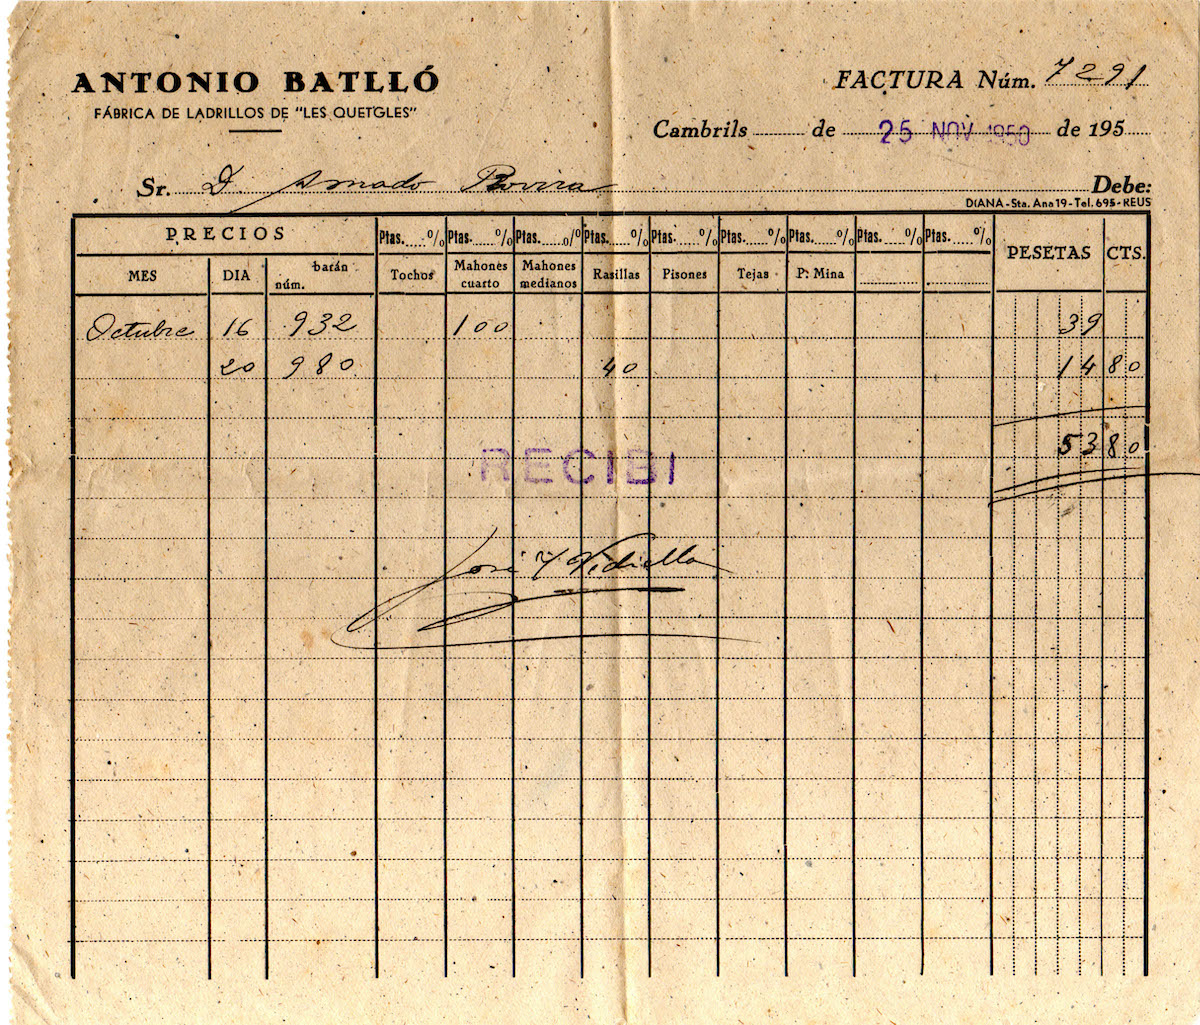 ANTONIO BATLLÓ
FÁBRICA DE LADRILLOS DE "LES QUETGLES"
FACTURA Núm. 7291
Cambrils de 25 NOV 1950 de 195
Sr. D. Amado Rovira Debe:
DIANA - Sta. Ana 19 - Tel. 695 - REUS
PRECIOS Ptas. % Ptas. % Ptas. % Ptas. % Ptas. % Ptas. % Ptas. % Ptas. % Ptas. % PESETAS CTS.
MES DIA barán núm. Tochos Mahones cuarto Mahones medianos Rasillas Pisones Tejas P: Mina
Octubre 16 932 100 39
20 980 40 14 80
53 80
RECIBI
José Vidiella